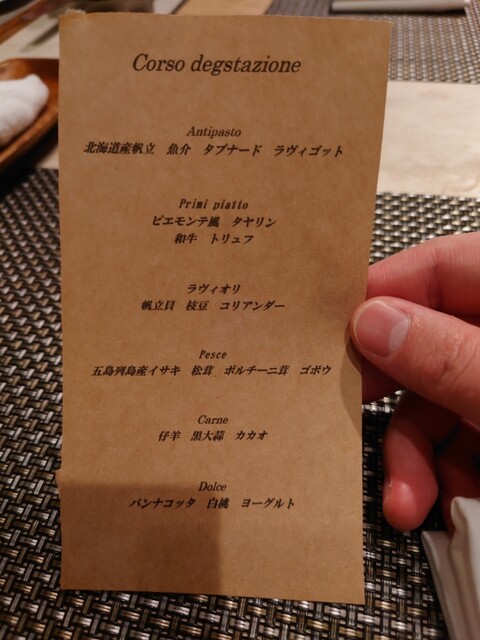 Corso degstazione
Antipasto
北海道産帆立　魚介　タプナード　ラヴィゴット
Primi piatto
ピエモンテ風　タヤリン
和牛　トリュフ
ラヴィオリ
帆立貝　枝豆　コリアンダー
Pesce
五島列島産イサキ　松茸　ポルチーニ茸　ゴボウ
Carne
仔羊　黒大蒜　カカオ
Dolce
パンナコッタ　白桃　ヨーグルト